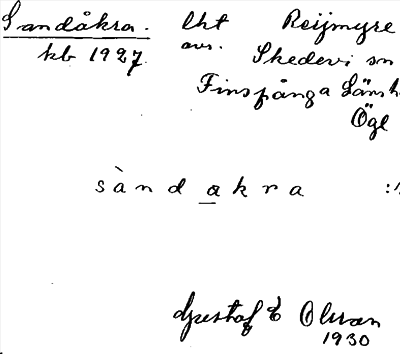 Sandåkra. lht Reijmyre
kb 1927. avs. Skedevi sn
Finspånga Läns h
Ögl
sàndakra :
Gustaf E Olsson
1930